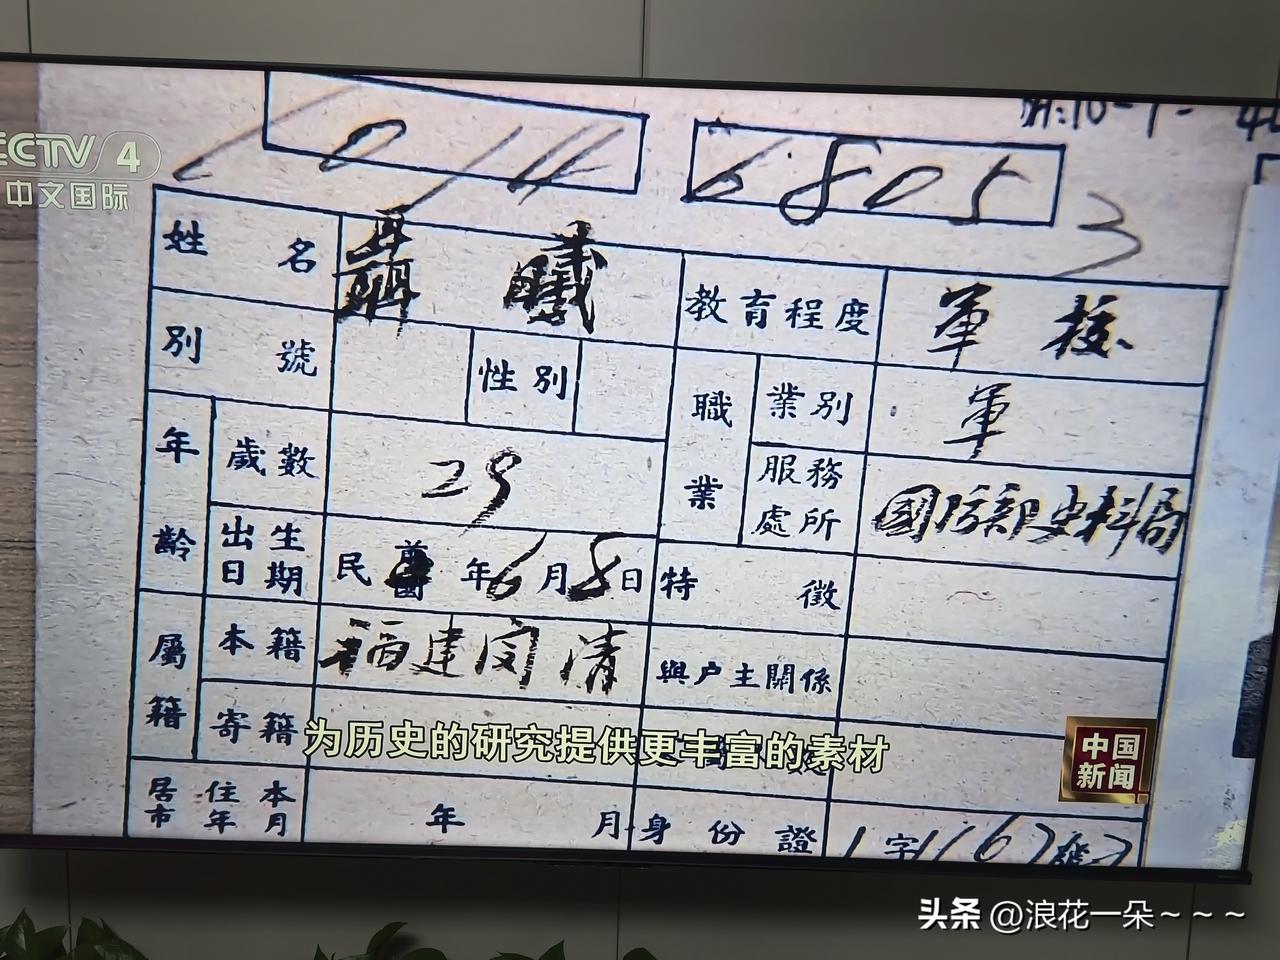 CCTV 4
中文国际
1014 68053
姓名 聶曦 教育程度 軍校
別號 性別 職業 業別 軍
年齡 歲數 29 服務處所 國防部史料局
出生日期 民國 年6月8日 特徵
屬籍 本籍 福建闽清 與户主關係
寄籍
为历史的研究提供更丰富的素材
中国新闻
居住本市年月 年 月 身份證 字
头条 @浪花一朵～～～